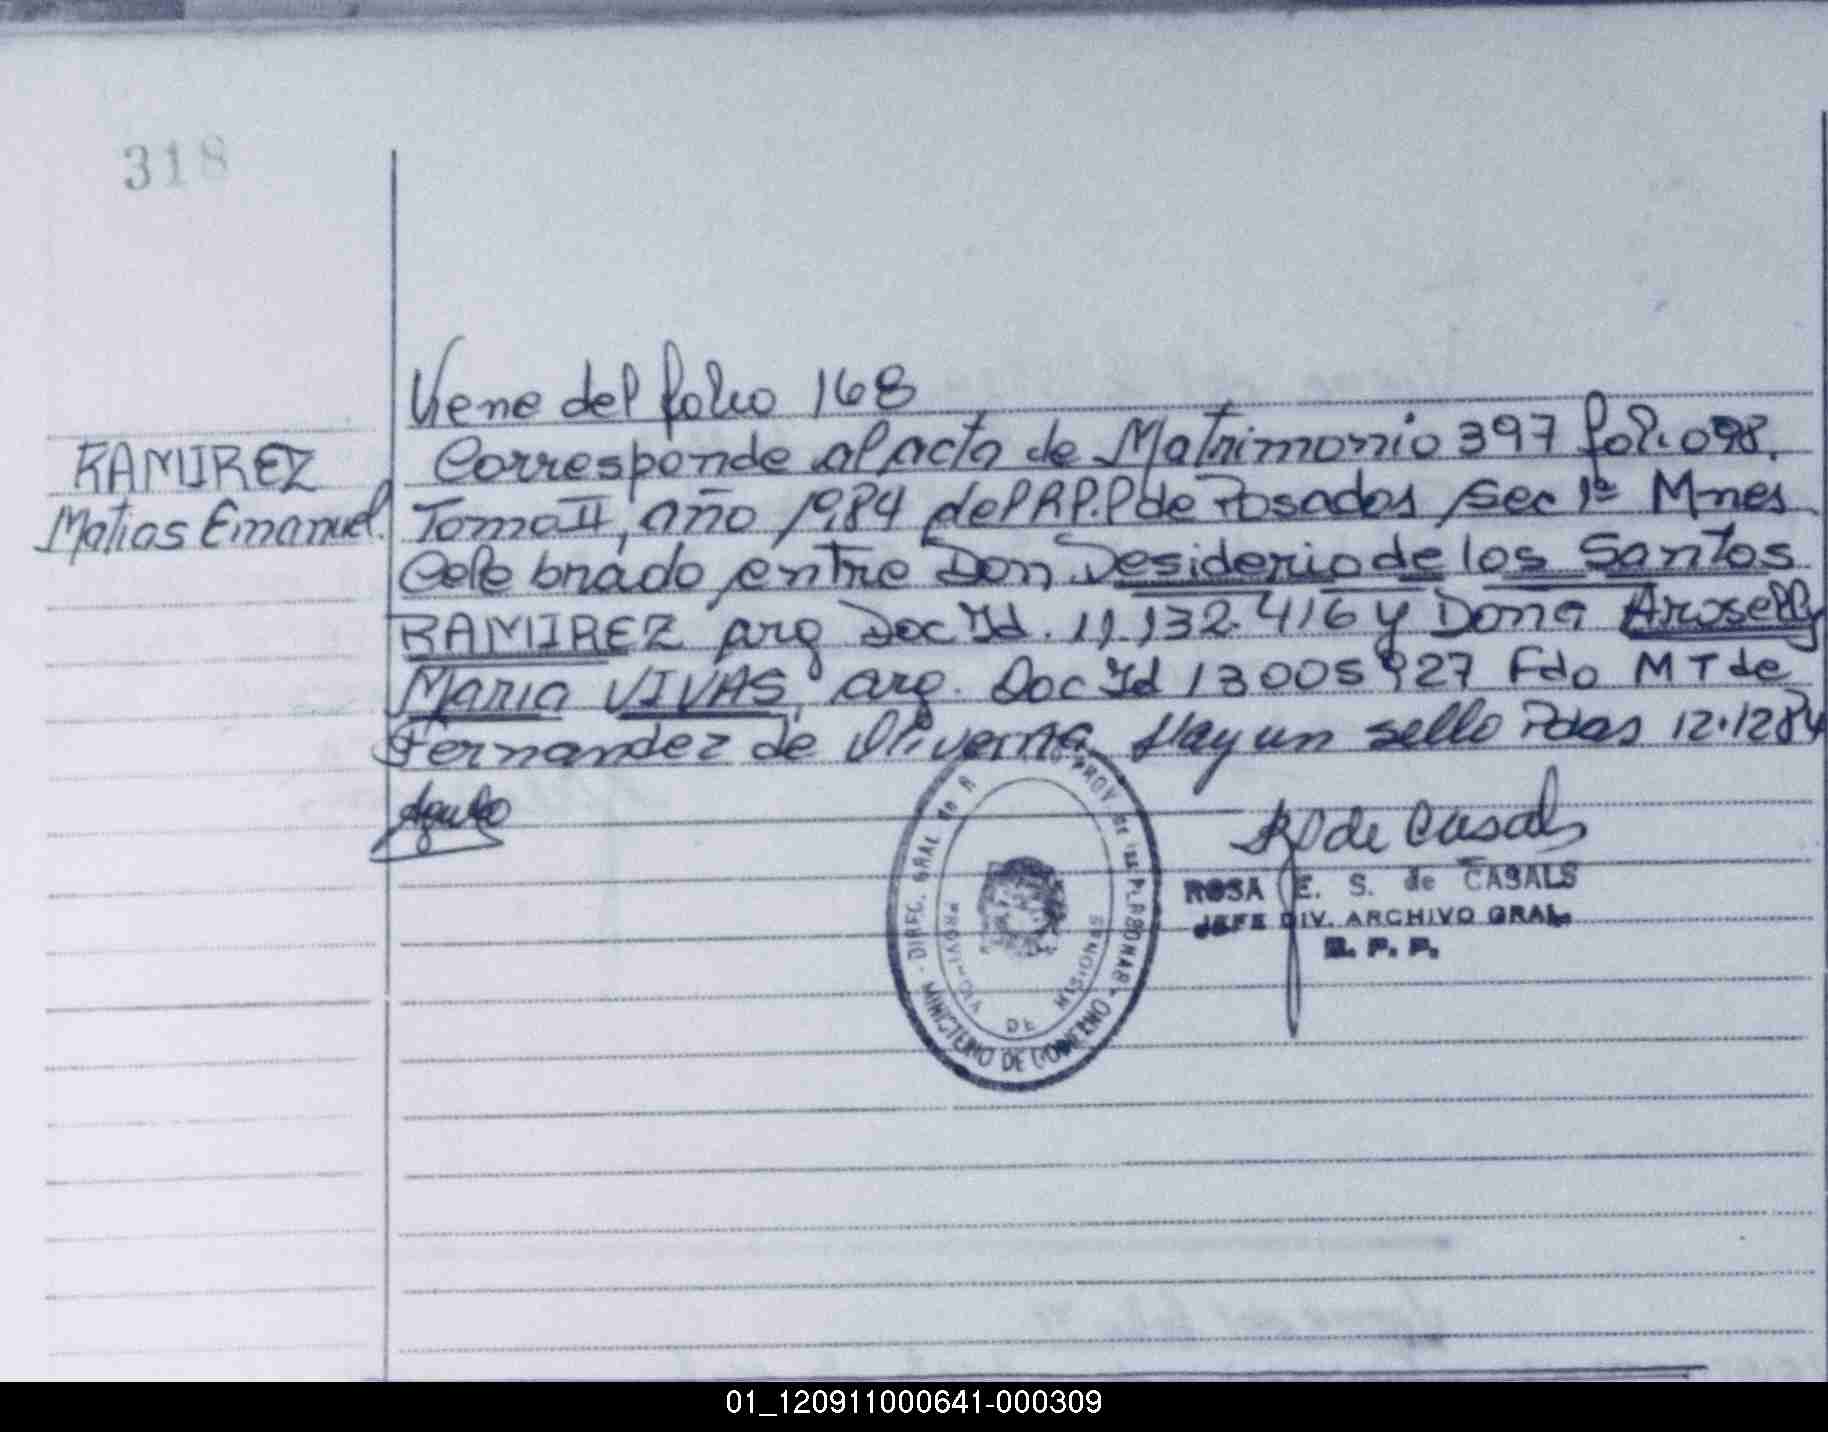 318
Viene del folio 168
RAMIREZ
Matias Emanuel.
Corresponde al acta de Matrimonio 397 foli. 098.
Tomo II, año 1984 del R.P.P de Posadas sec 1ª Mnes
Celebrado entre Don Desiderio de los Santos
RAMIREZ arg Doc Id. 11,132.416 y Dona Aroselly
Maria VIVAS, arg. Doc Id 13005927 Fdo M T de
Fernandez de Oliverna Hay un sello Pdas 12.1284
R de Casals
ROSA E. S. de CASALS
JEFE DIV. ARCHIVO GRAL.
R. P. P.
DIREC. GRAL de R PROV. de las PERSONAS
MINISTERIO DE GOBIERNO
PROVINCIA DE MISIONES
01_120911000641-000309